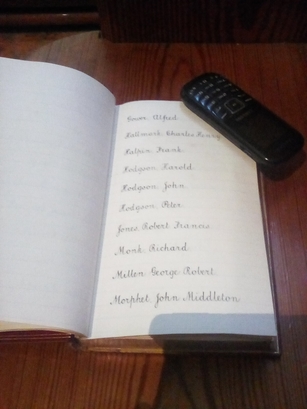 Alfred
Hallmark Charles Henry
Frank
Hodgson Harold
Hodgson John
Hodgson Peter
Jones Robert Francis
Monk Richard
Mellen George Robert
Morphet, John Middleton